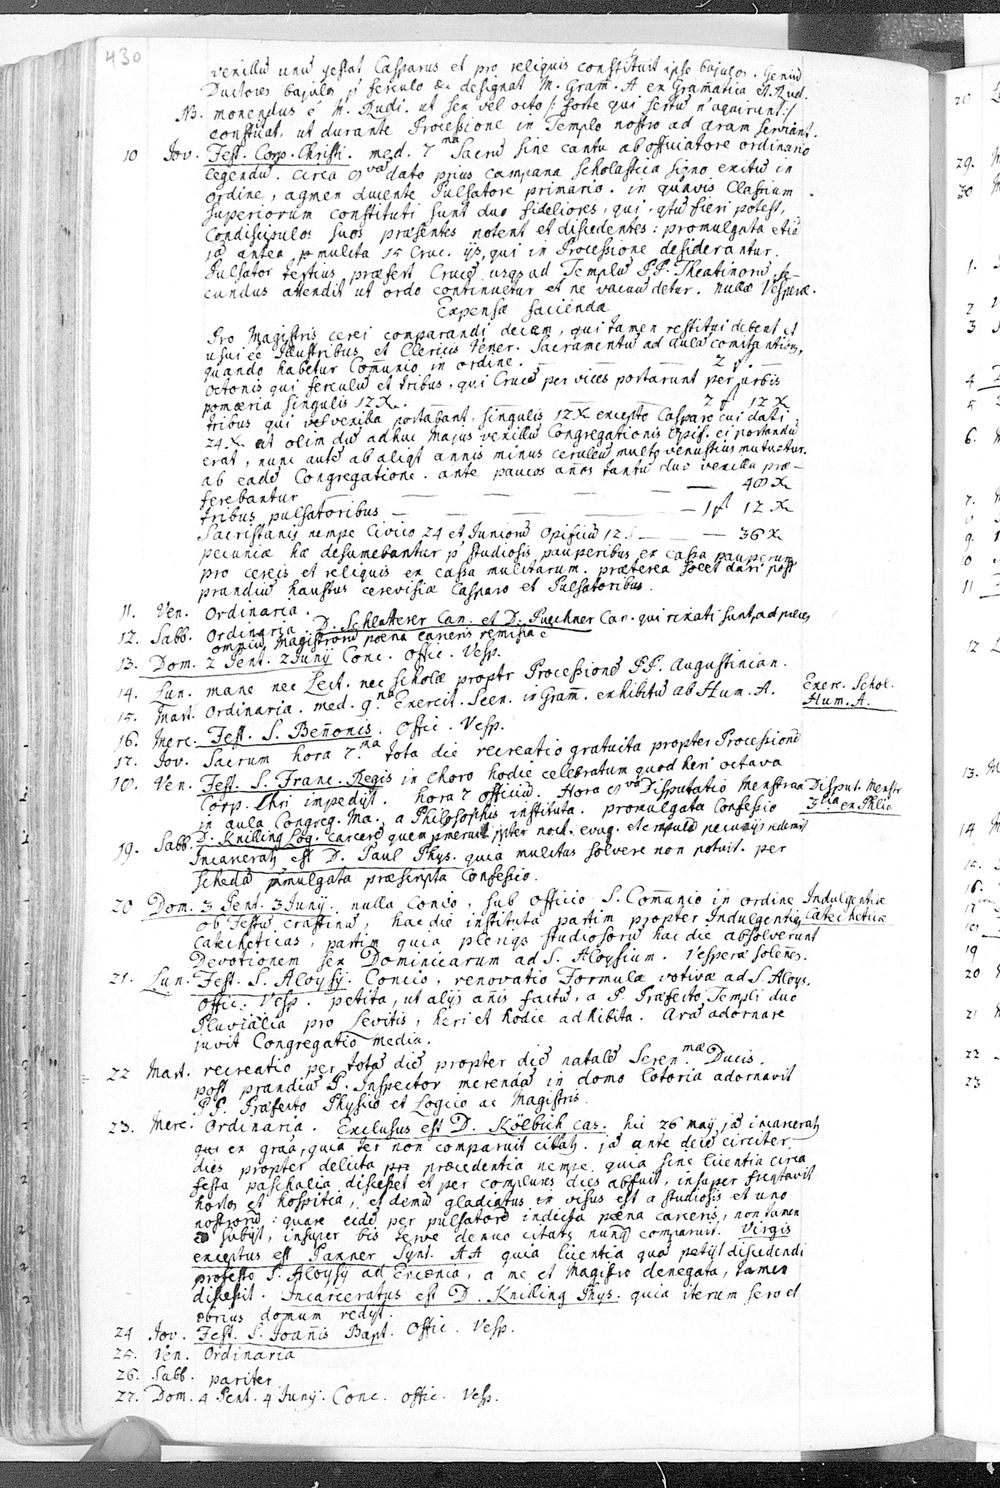 430
vexillū unū gestat Casparus et pro reliquis constituit ipse bajulos. Geniū
Ductores bajulos p̄ ferculo &c designat M. Gram. A ex Gramatica et Rud.
NB. monendus ē M. Rudi. ut sex vel octo /: forte qui sertū n̄ aquirunt :/
constituat, ut durante Processione in Templo nostro ad aram serviant.
10 Jov. Fest. Corp. Christi. med. 7 ma Sacrū sine cantu ab officiatore ordinario
legendū. Circa 8 va dato prius campana scholastica signo exitū in
ordine, agmen ducente Pulsatore primario. in quavis Classium
superiorum constituti sunt duo fideliores, qui, qtū fieri potest,
Condiscipulos suos præsentes notent et discedentes: promulgata etiā
jā antea p mulcta 15 Cruc. ijs, qui in Processione desiderantur.
Pulsator tertius præfert Crucē usq3 ad Templū PP. Theatinorū, se-
cundus attendit ut ordo continuetur et ne vacuū detur. nullæ Vesperæ.
Expensæ faciendæ
Pro Magistris cerei comparandi decem, qui tamen restitui debent et
usui ee Illustribus et Clericis Vener. Sacramentū ad aulā comitantibus,
quando habetur Com̄unio in ordine. — 2 f. —
octonis qui ferculū et tribus, qui Crucē per vices portarunt per urbis
pomæria singulis 12 X. — 2 f 12 X
tribus qui vexilla portabant, singulis 12 X excepto Casparo cui dati
24 X. at olim dū adhuc majus vexillū Congregationis Opif. ei portandū
erat, nunc autē ab aliqt annis minus cæruleū multo venustius mutuatur
ab eadē Congregatione. ante paucos an̄os tantū duo vexilla præ-
ferebantur — — — — 48 X
tribus pulsatoribus — — — — 1 f 12 X
Sacristanis nempe Civico 24 et Juniorū Opificū 12. — — 36 X
pecuniæ hæ desumebantur p̄ studiosis pauperibus ex cassa pauperum
pro cereis et reliquis ex cassa mulctarum. præterea solet dari post
prandiū haustus cerevisiæ Casparo et Pulsatoribus.
11. Ven. Ordinaria.
12. Sabb. Ordinaria. D. Schletterer Can. et D. Puechner Can. qui rixati sunt, ad preces
omniū Magistrorū pœna carceris remissa ē
13. Dom. 2 Pent. 2 Junij Conc. Offic. Vesp.
14. Lun. mane nec Lect. nec scholæ proptr Processionē PP. Augustinian.
15. Mart. Ordinaria. med. 9. na Exercit. Scen. in Gram. exhibitū ab Hum. A.
Exerc. Schol.
Hum. A.
16. Merc. Fest. S. Ben̄onis. Offic. Vesp.
17. Jov. Sacrum hora 7. ma tota die recreatio gratuita propter Processionē
18. Ven. Fest. S. Franc. Regis in Choro hodie celebratum quod heri octava
Corp. Chri impedijt. hora 7 officiū. Hora 8 va Disputatio Menstrua
in aula Congreg. Ma. a Philosophis instituta. promulgata Confessio
Disput. Menstr
3 tia ex Phlia
19. Sabb. D. Knilling Log. carcerē quem pmeruit ppter noct. evag. etc
Incaceratq est D. Paul Phys. quia mulctas solvere non potuit. per
scheda pmulgata præscripta Confessio.
20 Dom. 3 Pent. 3 Junij. nulla Concio, sub officio S. Com̄unio in ordine
ob Festū crastinū, hac die instituta partim propter Indulgentias
Catecheticas, partim quia pleriq3 studiosorū hac die absolverunt
Devotionem sex Dominicarum ad S. Aloysium. Vesperæ solen̄es.
Indulgentiæ
Catecheticæ
21. Lun. Fest. S. Aloysij. Concio, renovatio Formulæ votivæ ad S. Aloys.
Offic. Vesp. petita, ut alijs an̄is factū, a P. Præfecto Templi duo
Pluvialia pro Levitis, heri et hodie adhibita. Arā adornare
juvit Congregatio media.
22 Mart. recreatio per totā diē propter diē natalē Seren. mæ Ducis.
post prandiū P. Inspector merendā in domo lotoria adornavit
PP. Præfecto Physico et Logico ac Magistris.
23. Merc. Ordinaria. Exclusus est D. Kölbich Cas. hic 26 maij jā incarceratq
ex gratia, quia ter non comparuit citatq. jā ante decē circiter
dies propter delicta præcedentia nempe quia sine licentia circa
festa paschalia discessit et per complures dies abfuit, insuper frequtavit
hortos et hospitia, et demū gladiatus visus est a studiosis et uno
nostrorū: quare eidē per pulsatorē indicta pœna carceris, non tamen
subijt, insuper bis denuo citatq nunq comparuit. Virgis
exceptus est Panner Synt. AA quia licentia quā petijt discedendi
profesto S. Aloysij ad Encænia, a me et Magistro denegata, tamen
discessit. Incarceratus est D. Knilling Phys. quia iterum sero et
ebrius domum redijt.
24 Jov. Fest. S. Joan̄is Bapt. Offic. Vesp.
25. Ven. Ordinaria
26. Sabb. pariter
27. Dom. 4 Pent. 4 Junij. Conc. Offic. Vesp.